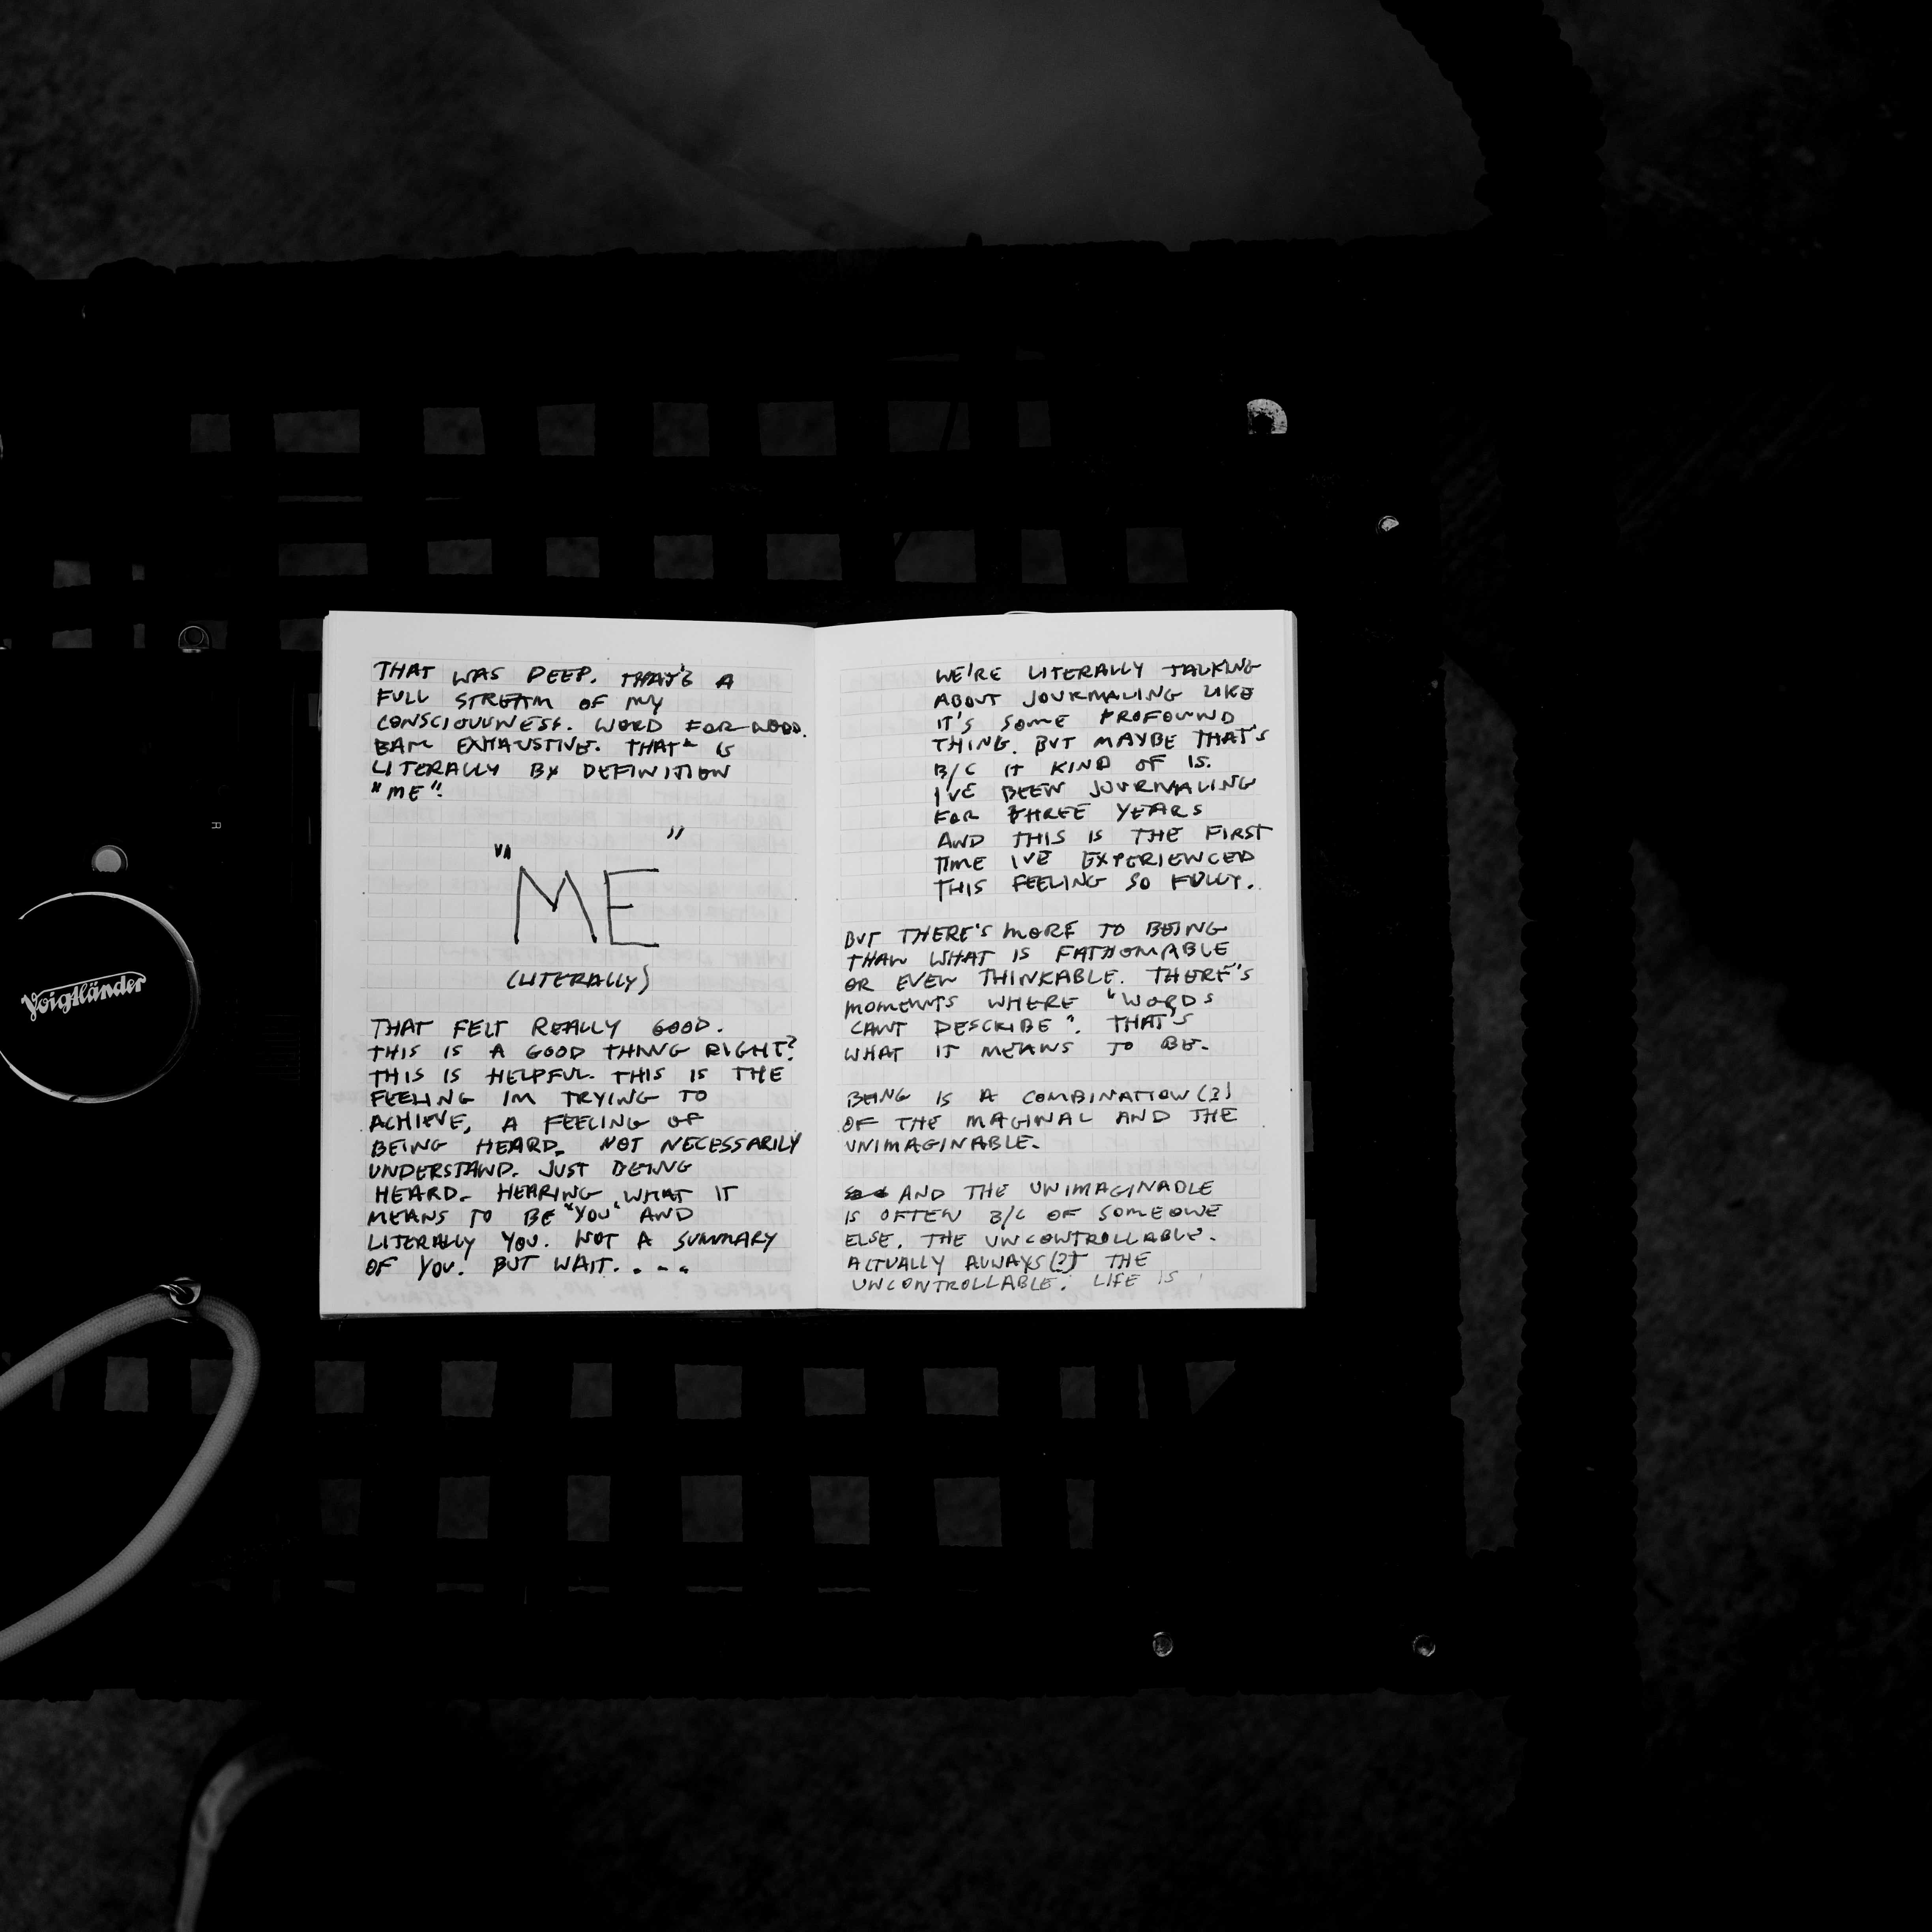 THAT WAS DEEP. THAT'S A
FULL STREAM OF MY
CONSCIOUNESS. WORD FOR WORD.
BAM EXHAUSTIVE. THAT IS
LITERALLY BY DEFINITION
"ME".
"ME"
(LITERALLY)
THAT FELT REALLY GOOD.
THIS IS A GOOD THING RIGHT?
THIS IS HELPFUL. THIS IS THE
FEELING IM TRYING TO
ACHIEVE, A FEELING OF
BEING HEARD. NOT NECESSARILY
UNDERSTAND. JUST BEING
HEARD. HEARING WHAT IT
MEANS TO BE "YOU" AND
LITERALLY YOU. NOT A SUMMARY
OF YOU! BUT WAIT....
WE'RE LITERALLY TALKING
ABOUT JOURNALING LIKE
IT'S SOME PROFOUND
THING. BUT MAYBE THAT'S
B/C IT KIND OF IS.
I'VE BEEN JOURNALING
FOR THREE YEARS
AND THIS IS THE FIRST
TIME I'VE EXPERIENCED
THIS FEELING SO FULLY.
BUT THERE'S MORE TO BEING
THAN WHAT IS FATHOMABLE
OR EVEN THINKABLE. THERE'S
MOMENTS WHERE "WORDS
CANT DESCRIBE". THAT'S
WHAT IT MEANS TO BE.
BEING IS A COMBINATION(?)
OF THE MAGINAL AND THE
UNIMAGINABLE.
AND THE UNIMAGINABLE
IS OFTEN B/C OF SOMEONE
ELSE. THE UNCONTROLLABLE.
ACTUALLY ALWAYS(?) THE
UNCONTROLLABLE. LIFE IS
Voigtländer